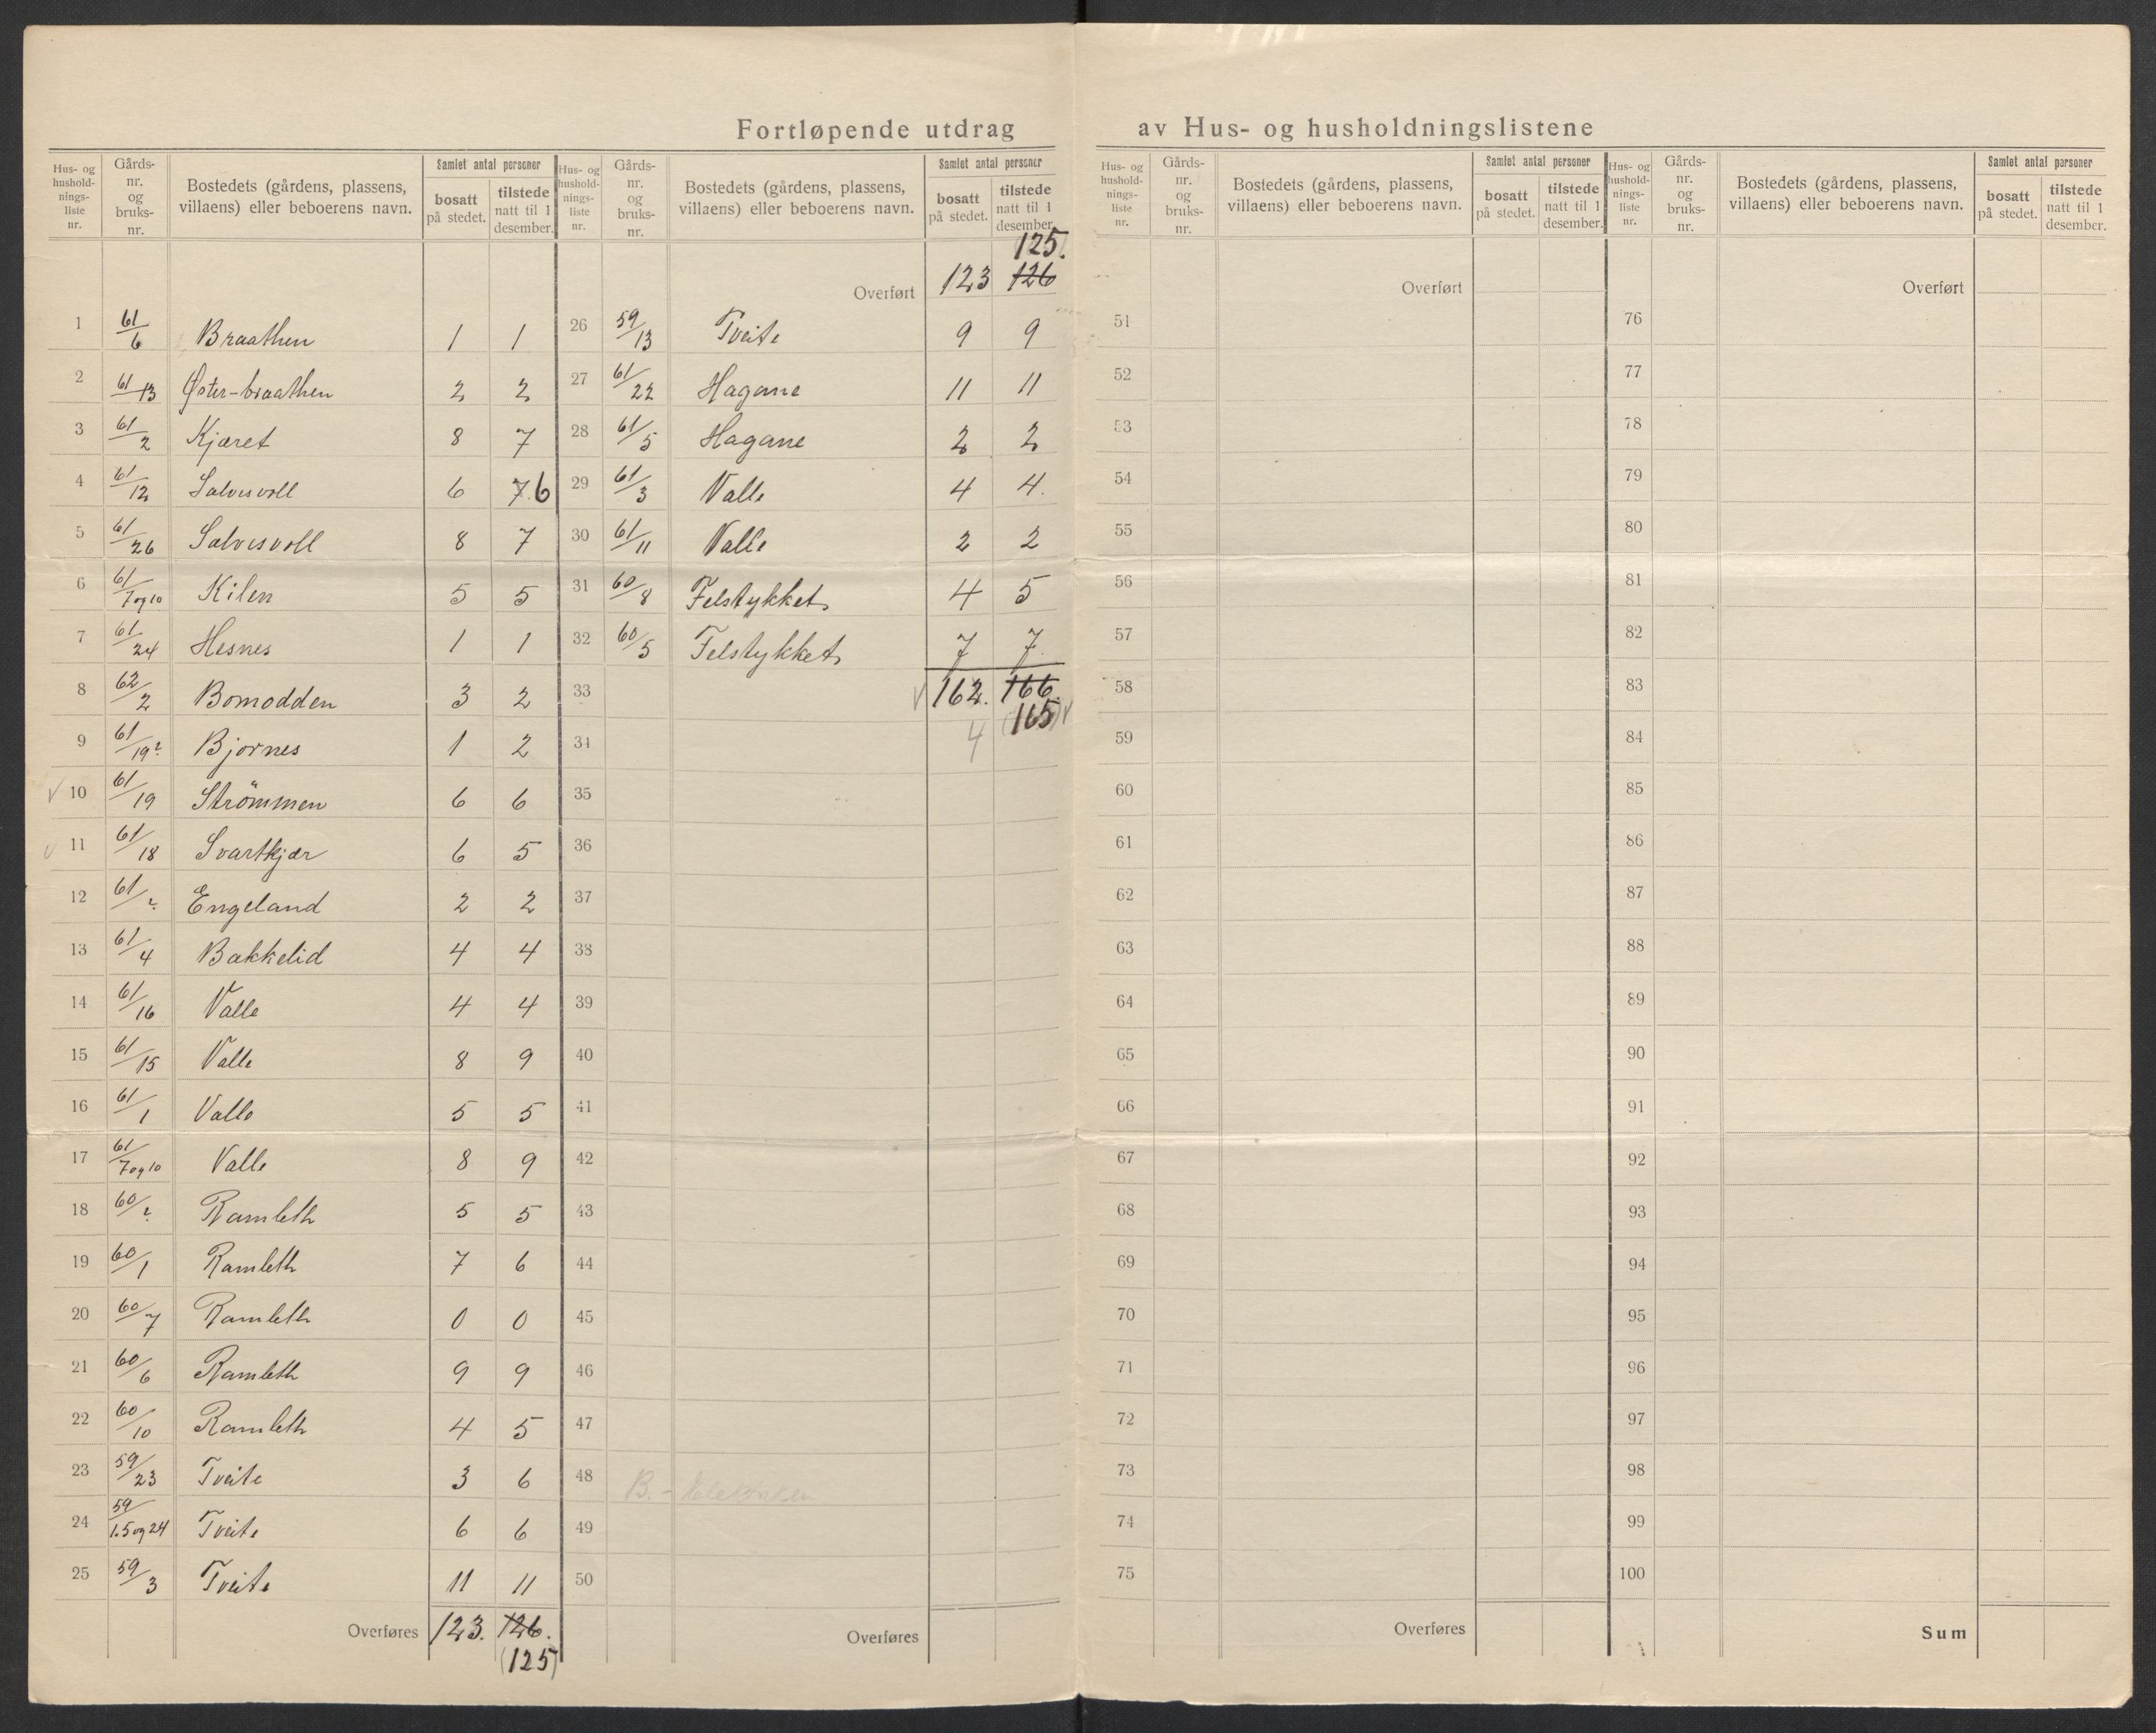 Fortløpende utdrag av Hus- og husholdningslistene
Hus- og hushold- nings- liste nr. | Gårds- nr. og bruks- nr. | Bostedets (gårdens, plassens, villaens) eller beboerens navn. | Samlet antal personer | bosatt på stedet. | tilstede natt til 1 desember.
1 61/6 Braathen 1 1
2 61/13 Øster-braathen 2 2
3 61/2 Kjæret 8 7
4 61/12 Salvesvoll 6 7. 6
5 61/26 Salvesvoll 8 7
6 61/7 og 10 Kilen 5 5
7 61/24 Hesnes 1 1
8 62/2 Bomodden 3 2
9 61/19² Bjornes 1 2
10 61/19 Strömmen 6 6
11 61/18 Svartkjær 6 5
12 61/? Engeland 2 2
13 61/4 Bakkelid 4 4
14 61/16 Valle 4 4
15 61/15 Valle 8 9
16 61/1 Valle 5 5
17 61/7 og 10 Valle 8 9
18 60/? Ramleth 5 5
19 60/1 Ramleth 7 6
20 60/7 Ramleth 0 0
21 60/6 Ramleth 9 9
22 60/10 Ramleth 4 5
23 59/23 Tveite 3 6
24 59/1.5 og 24 Tveite 6 6
25 59/3 Tveite 11 11
Overføres 123. 126.
(125)
Hus- og hushold- nings- liste nr. | Gårds- nr. og bruks- nr. | Bostedets (gårdens, plassens, villaens) eller beboerens navn. | Samlet antal personer | bosatt på stedet. | tilstede natt til 1 desember.
125.
Overført 123 126
26 59/13 Tveite 9 9
27 61/22 Hagane 11 11
28 61/5 Hagane 2 2
29 61/3 Valle 4 4.
30 61/11 Valle 2 2
31 60/8 Felstykket 4 5
32 60/5 Felstykket 7 7.
33 162. 166.
(165)
34 4
35
36
37
38
39
40
41
42
43
44
45
46
47
48 B. -
49
50
Overføres
Hus- og hushold- nings- liste nr. | Gårds- nr. og bruks- nr. | Bostedets (gårdens, plassens, villaens) eller beboerens navn. | Samlet antal personer | bosatt på stedet. | tilstede natt til 1 desember.
Overført
51
52
53
54
55
56
57
58
59
60
61
62
63
64
65
66
67
68
69
70
71
72
73
74
75
Overføres
Hus- og hushold- nings- liste nr. | Gårds- nr. og bruks- nr. | Bostedets (gårdens, plassens, villaens) eller beboerens navn. | Samlet antal personer | bosatt på stedet. | tilstede natt til 1 desember.
Overført
76
77
78
79
80
81
82
83
84
85
86
87
88
89
90
91
92
93
94
95
96
97
98
99
100
Sum